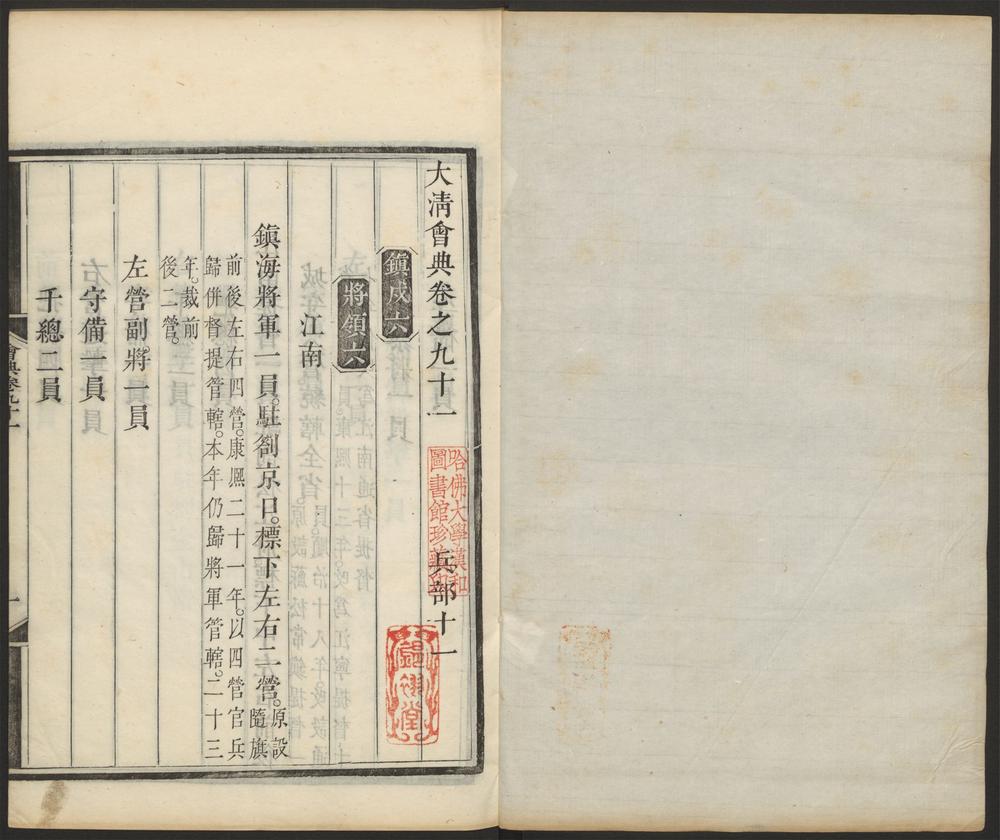 大清會典卷之九十一
兵部十一
哈佛大學漢和
圖書館珍藏印
鎮戍六
將領六
江南
鎮海將軍一員。駐劄京口。標下左右二營。原設
隨旗
前後左右四營。康熙二十一年。以四營官兵
歸併督提管轄。本年仍歸將軍管轄。二十三
年。裁前
後二營。
左營副將一員
守備一員
千總二員
會典卷九十一
一